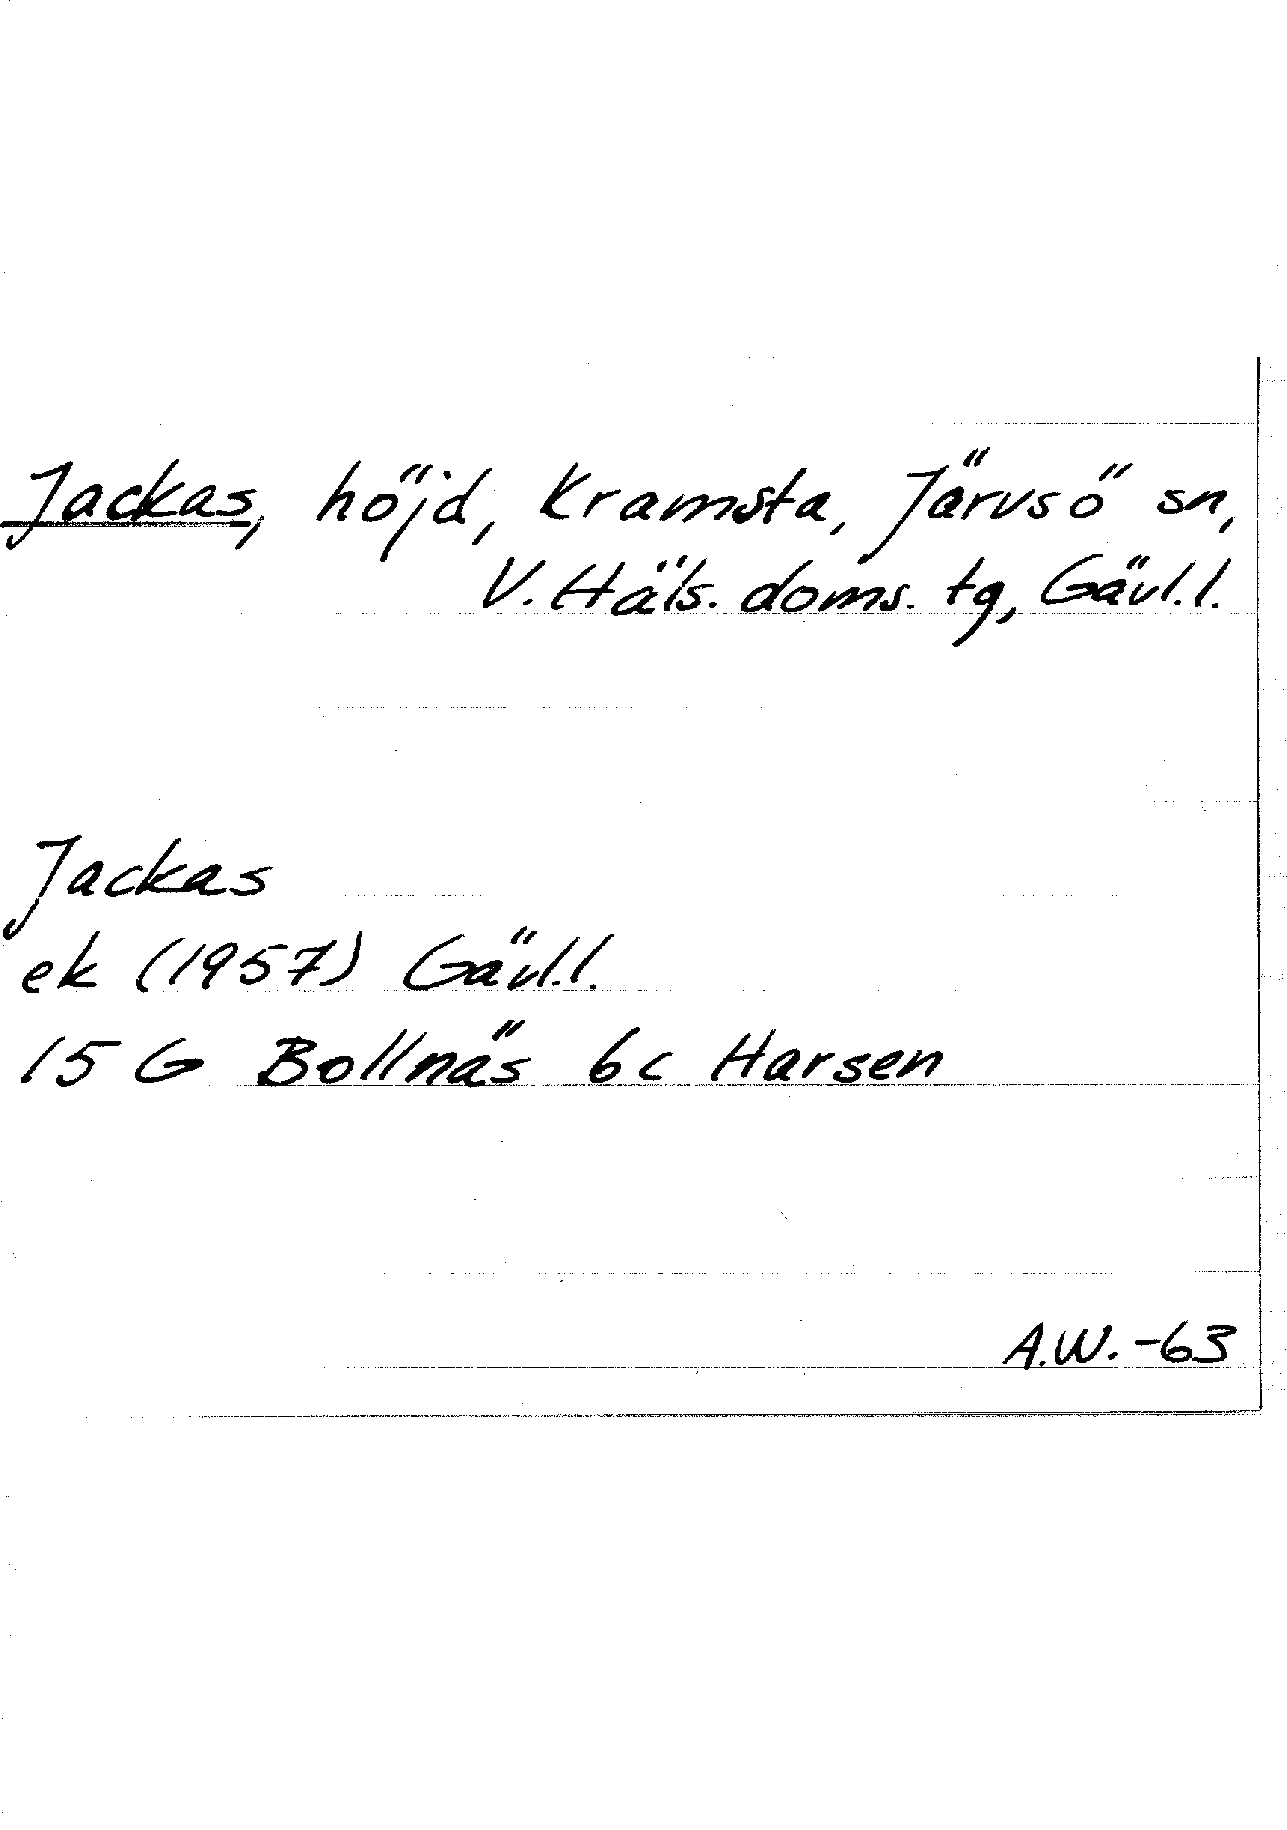 Jackas, höjd, Kramsta, Järvsö sn,
V. Häls. doms. tg, Gävl.l.
Jackas
ek (1957) Gävl.l.
15 G Bollnäs 6c Harsen
A.W. -63